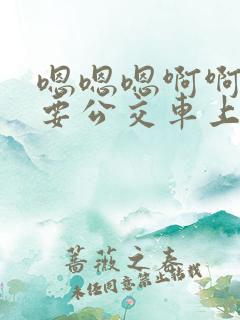 嗯嗯嗯啊啊
要公交車上
薔薇之春
未经同意禁止转载